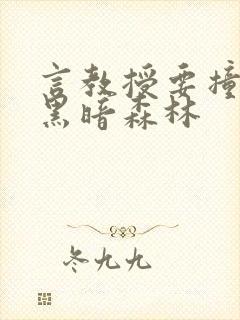 言教授要撞
黑暗森林
冬九九